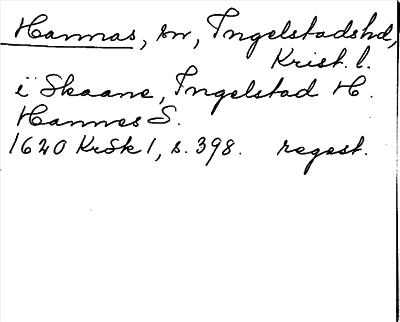 Hannas, sn, Ingelstadshd,
Krist. l.
i Skaane, Ingelstad H.
Hannes S.
1620 KrSk 1, s. 398. regest.